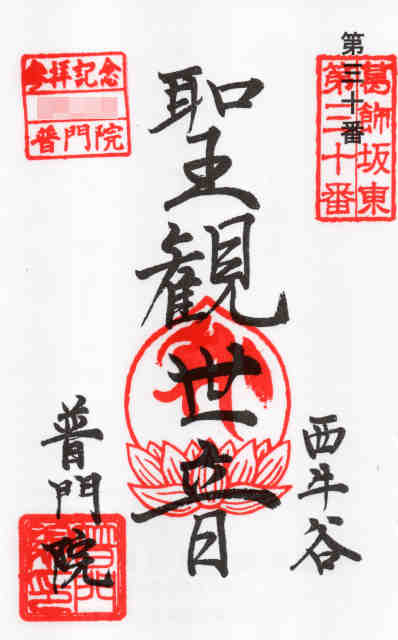 第三十番
葛飾坂東
第三十番
西牛谷
聖観世音
参拝記念
普門院
普門院